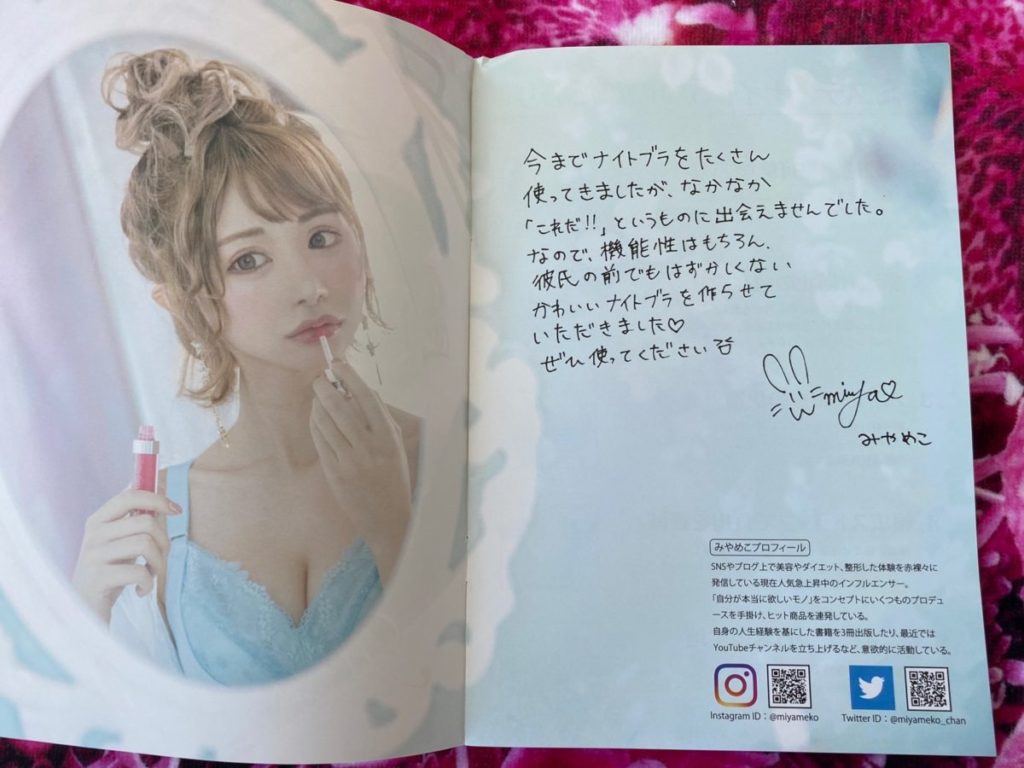 今までナイトブラをたくさん
使ってきましたが、なかなか
「これだ!!」というものに出会えませんでした。
なので、機能性はもちろん、
彼氏の前でもはずかしくない
かわいいナイトブラを作らせて
いただきました♡
ぜひ使ってください
miya♡
みやめこ
みやめこプロフィール
SNSやブログ上で美容やダイエット、整形した体験を赤裸々に
発信している現在人気急上昇中のインフルエンサー。
「自分が本当に欲しいモノ」をコンセプトにいくつものプロデュ
ースを手掛け、ヒット商品を連発している。
自身の人生経験を基にした書籍を3冊出版したり、最近では
YouTubeチャンネルを立ち上げるなど、意欲的に活動している。
Instagram ID：@miyameko
Twitter ID：@miyameko_chan